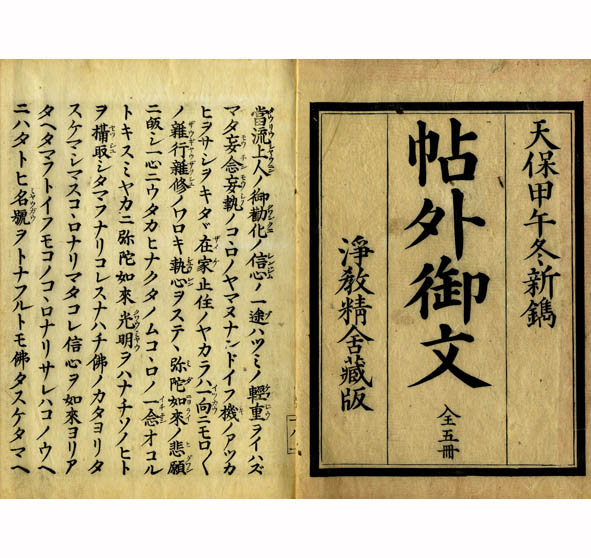 天保甲午冬新鐫
帖外御文
全五冊
淨教精舍藏版
當流上人ノ御勸化ノ信心ノ一途ハツミノ輕重ヲイハズ
マタ妄念妄執ノコヽロノヤマヌナンドイフ機ノアツカ
ヒヲサシヲキタヾ在家止住ノヤカラハ一向ニモロ〱
ノ雜行雜修ノワロキ執心ヲステヽ弥陀如來ノ悲願
ニ皈シ一心ニウタカヒナクタノムコヽロノ一念オコル
トキスミヤカニ弥陀如來光明ヲハナチソノヒト
ヲ攝取シタマフナリコレスナハチ佛ノカタヨリタ
スケマシマスコヽロナリマタコレ信心ヲ如來ヨリア
タヘタマフトイフモコノコヽロナリサレハコノウヘ
ニハタトヒ名號ヲトナフルトモ佛タスケタマヘ